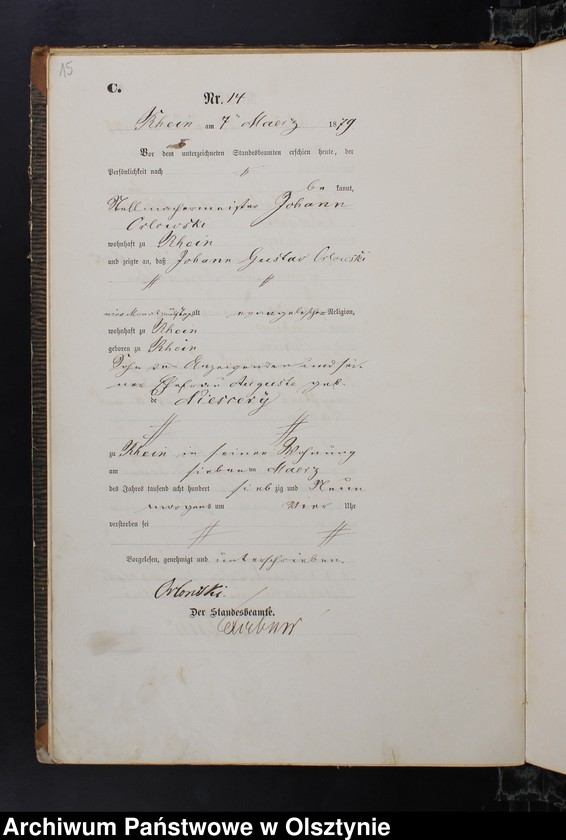 15
C.
Nr. 14
Rhein am 7ten Maerz 1879
Vor dem unterzeichneten Standesbeamten erschien heute, der
Persönlichkeit nach
be kannt,
Stellmachermeister Johann
Orlowski
wohnhaft zu Rhein
und zeigte an, daß Johann Gustav Orlowski
alt evangelischer Religion,
wohnhaft zu Rhein
geboren zu Rhein
Sohn des Anzeigenden und sei-
ner Ehefrau Auguste geb.
zu Rhein in seiner Wohnung
am sieben ten Maerz
des Jahres tausend acht hundert sieb zig und Neun
morgens um vier Uhr
verstorben sei
Vorgelesen, genehmigt und unterschrieben.
Orlowski.
Der Standesbeamte.
Archiwum Państwowe w Olsztynie